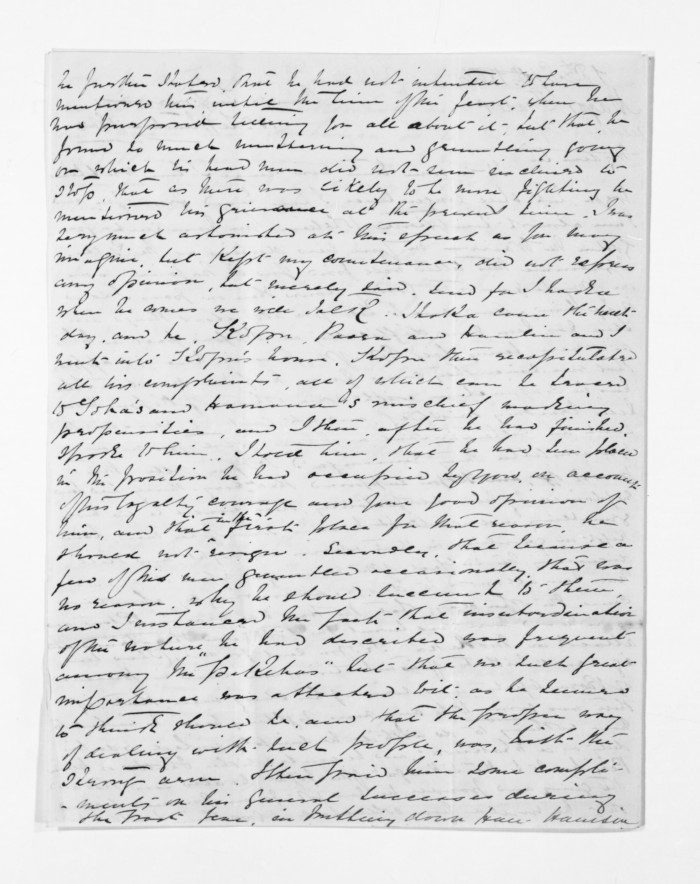 he further stated that he had not intended to have
mentioned this until the time of the feast, when he
had purposed telling you all about it, but that, he
found so much murmuring and grumbling going
on which his head men did not seem inclined to
stop, that as there was likely to be more fighting he
mentioned his grievance at the present time. I was
very much astonished at this speech as you may
imagine, but kept my countenance, did not express
any opinion, but merely said. Send for
when he comes we will talk. came the next
day, and he, Kopu, and Hamlin and I
went into Kopu's house. Kopu then recapitulated
all his complaints, all of which can be traced
to and mischief making
propensities, and I then, after he had finished
spoke to him, I told him, that he had been placed
in the position he had occupied by you, on account
of his loyalty courage and your good opinion of
him, and that in the first place for that reason he
should not resign. Secondly, that because a
few of his men grumbled occasionally, that was
no reason why he should succumb to them,
and I instanced the fact that insubordination
of the nature he had described was frequent
among the "pakehas" but that no such great
importance was attached to it, as he seemed
to think should be, and that the proper way
of dealing with such people, was, with the
strong arm. I then paid him some compli-
-ments on his general successes during
the past year, in putting down Hau Hauism